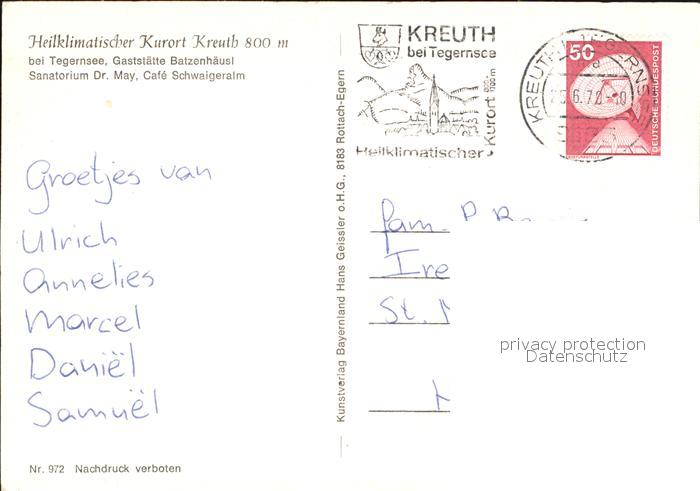 Heilklimatischer Kurort Kreuth 800 m
bei Tegernsee, Gaststätte Batzenhäusl
Sanatorium Dr. May, Café Schwaigeralm
Groetjes van
Ulrich
Annelies
Marcel
Daniël
Samuël
Nr. 972 Nachdruck verboten
Kunstverlag Bayernland Hans Geissler o.H.G., 8183 Rottach-Egern
KREUTH
bei Tegernsee
Heilklimatischer Kurort
KREUTH
50
DEUTSCHE BUNDESPOST
fam.
St.
privacy protection
Datenschutz